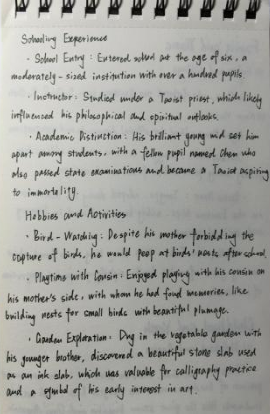 Schooling Experience
· School Entry : Entered school at the age of six, a
moderately-sized institution with over a hundred pupils
· Instructor : Studied under a Taoist priest, which likely
influenced his philosophical and spiritual outlooks.
· Academic Distinction : His brilliant young mind set him
apart among students, with a fellow pupil named Chen who
also passed state examinations and became a Taoist aspiring
to immortality.
Hobbies and Activities
· Bird-Watching : Despite his mother forbidding the
capture of birds, he would peep at birds' nests after school.
· Playtime with Cousin : Enjoyed playing with his cousin on
his mother's side, with whom he had fond memories, like
building nests for small birds with beautiful plumage.
· Garden Exploration : Dug in the vegetable garden with
his younger brother, discovered a beautiful stone slab used
as an ink slab, which was valuable for calligraphy practice
and a symbol of his early interest in art.